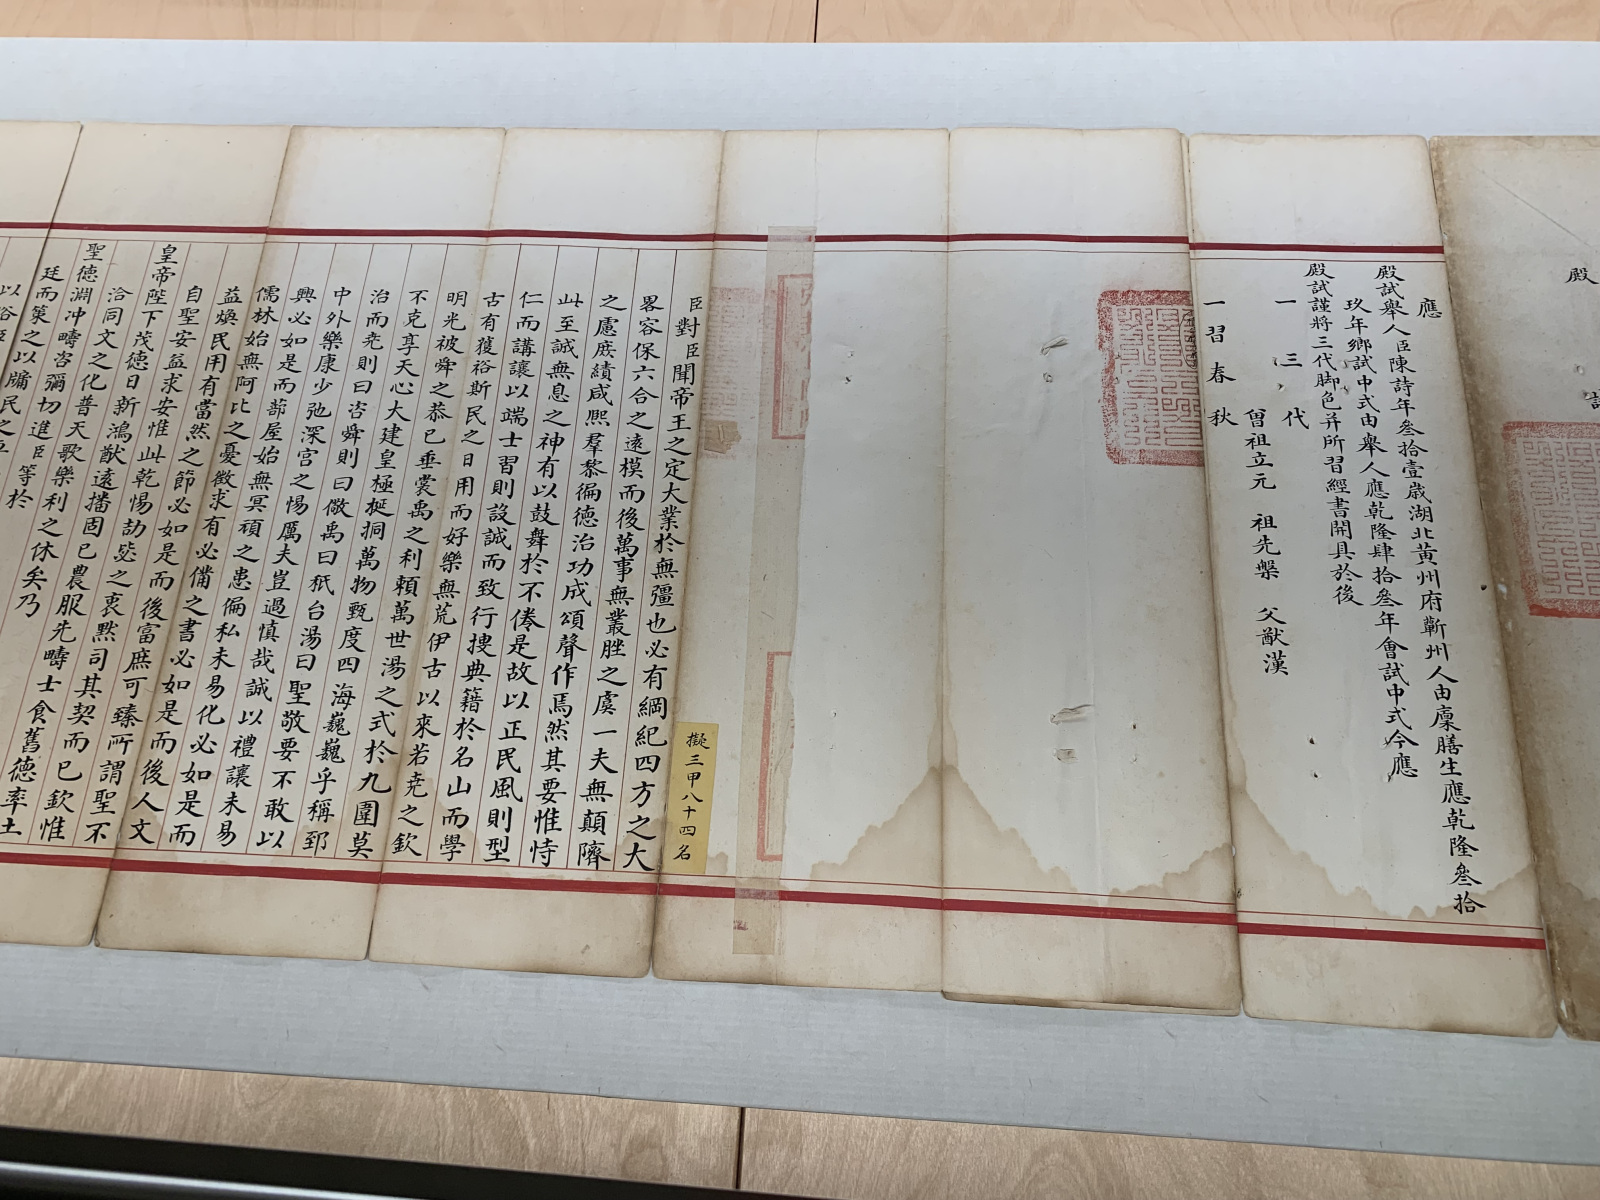 殿
應
殿試舉人臣陳詩年叁拾壹歲湖北黃州府蘄州人由廩膳生應乾隆叁拾
玖年鄉試中式由舉人應乾隆肆拾叁年會試中式今應
殿試謹將三代脚色并所習經書開具於後
一三代
曾祖立元 祖先槃 父猷漢
一習春秋
擬三甲八十四名
臣對臣聞帝王之定大業於無彊也必有綱紀四方之大
畧容保六合之遠模而後萬事無叢脞之虞一夫無顛隮
之慮庶績咸熙羣黎徧德治功成頌聲作焉然其要惟恃
此至誠無息之神有以鼓舞於不倦是故以正民風則型
仁而講讓以端士習則設誠而致行搜典籍於名山而學
古有獲裕斯民之日用而好樂無荒伊古以來若堯之欽
明光被舜之恭已垂裳禹之利賴萬世湯之式於九圍莫
不克享天心大建皇極梃埛萬物甄度四海巍巍乎稱郅
治而堯則曰咨舜則曰儆禹曰祇台湯曰聖敬要不敢以
中外樂康少弛深宮之惕厲夫豈過慎哉誠以禮讓未易
興必如是而蔀屋始無冥頑之患偏私未易化必如是而
儒林始無阿比之憂徵求有必備之書必如是而後人文
益煥民用有當然之節必如是而後富庶可臻所謂聖不
自聖安益求安惟此乾惕劼毖之衷黙司其契而已欽惟
皇帝陛下茂德日新鴻猷遠播固已農服先疇士食舊德率土
洽同文之化普天歌樂利之休矣乃
聖德淵冲疇咨彌切進臣等於
廷而策之以牖民之